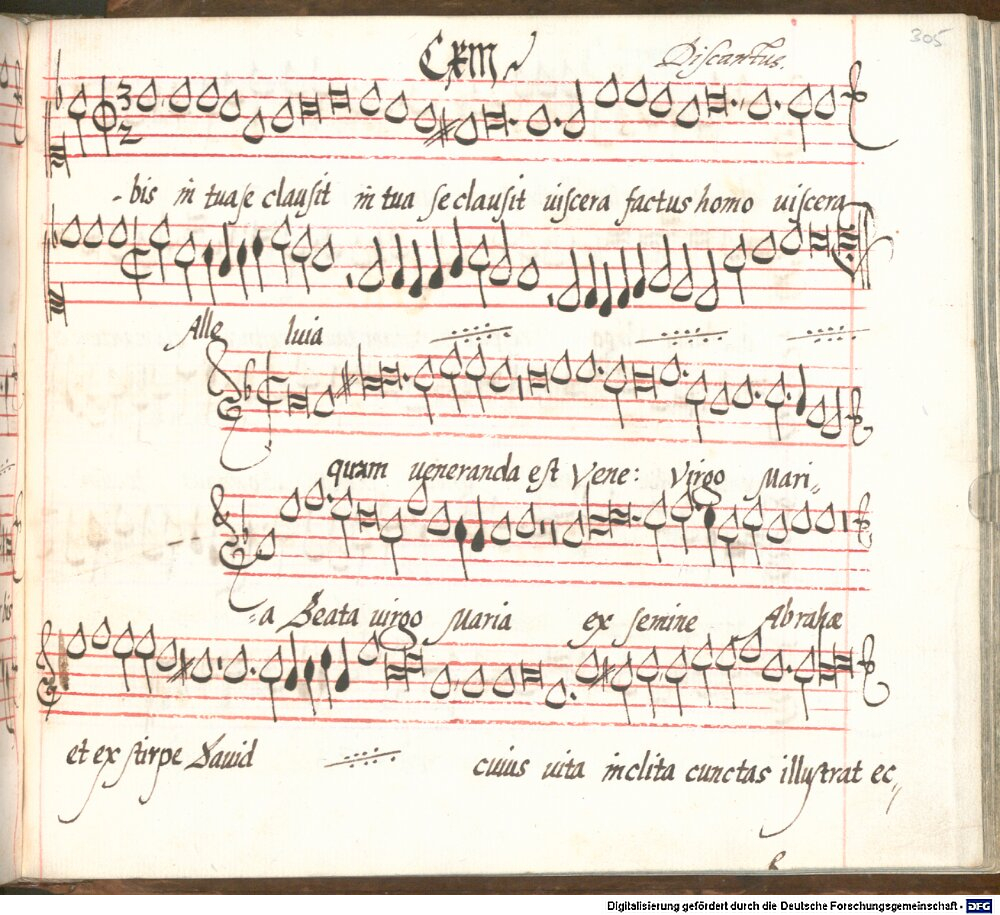 305
CXIII
Discantus.
-bis in tua se clausit in tua se clausit viscera factus homo viscera
Alle luia
quam veneranda est Vene: Virgo Mari„
„a Beata virgo Maria ex semine Abrahæ
et ex stirpe David cuius vita inclita cunctas illustrat ec„
Digitalisierung gefördert durch die Deutsche Forschungsgemeinschaft - DFG